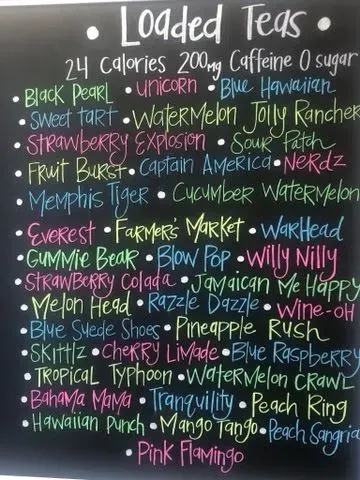 • Loaded Teas •
24 Calories 200mg Caffeine 0 sugar
• Black Pearl • Unicorn • Blue Hawaiian
• Sweet tart • Watermelon Jolly Rancher
• Strawberry Explosion • Sour Patch
• Fruit Burst • Captain America • Nerdz
• Memphis Tiger • Cucumber Watermelon
• Everest • Farmers' Market • WarHead
• Gummie Bear • Blow Pop • Willy Nilly
• Strawberry Colada • Jamaican Me Happy
• Melon Head • Razzle Dazzle • Wine-OH
• Blue Suede Shoes • Pineapple Rush
• Skittlz • Cherry Limade • Blue Raspberry
• Tropical Typhoon • Watermelon Crawl
• Bahama Mama • Tranquility • Peach Ring
• Hawaiian Punch • Mango Tango • Peach Sangria
• Pink Flamingo